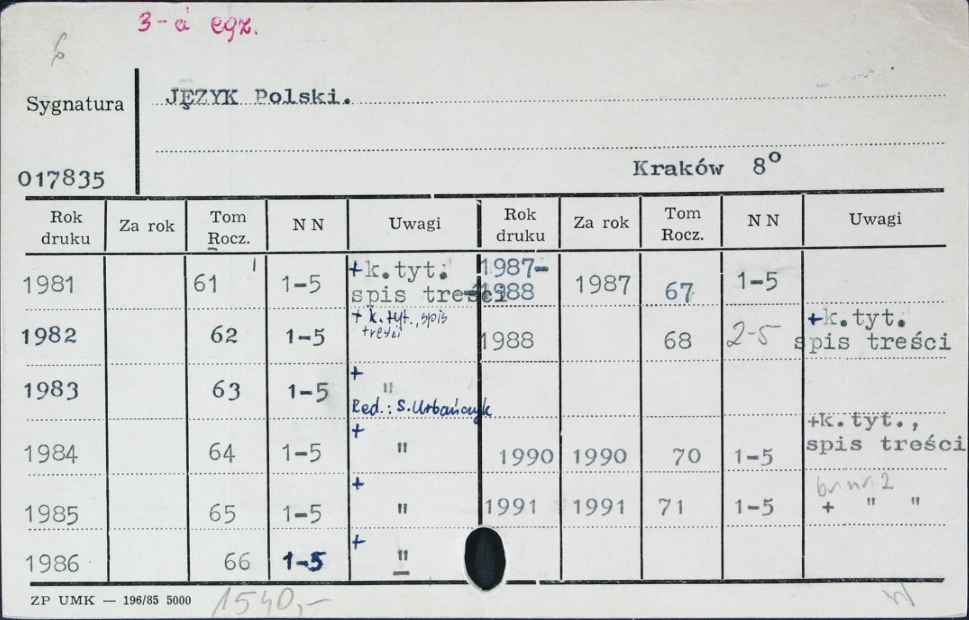 3-a egz.
6
Sygnatura JĘZYK Polski.
017835 Kraków 8°
Rok druku Za rok Tom Rocz. N N Uwagi Rok druku Za rok Tom Rocz. N N Uwagi
1981 61 1-5 +k.tyt. spis treści 1987-1988 1987 67 1-5
1982 62 1-5 + k.tyt., spis treści 1988 68 2-5 +k.tyt. spis treści
1983 63 1-5 + " Red.: S. Urbańczyk
1984 64 1-5 + " 1990 1990 70 1-5 +k.tyt., spis treści
1985 65 1-5 + " 1991 1991 71 1-5 br nr 2 + " "
1986 66 1-5 + "
ZP UMK — 196/85 5000 1540,-